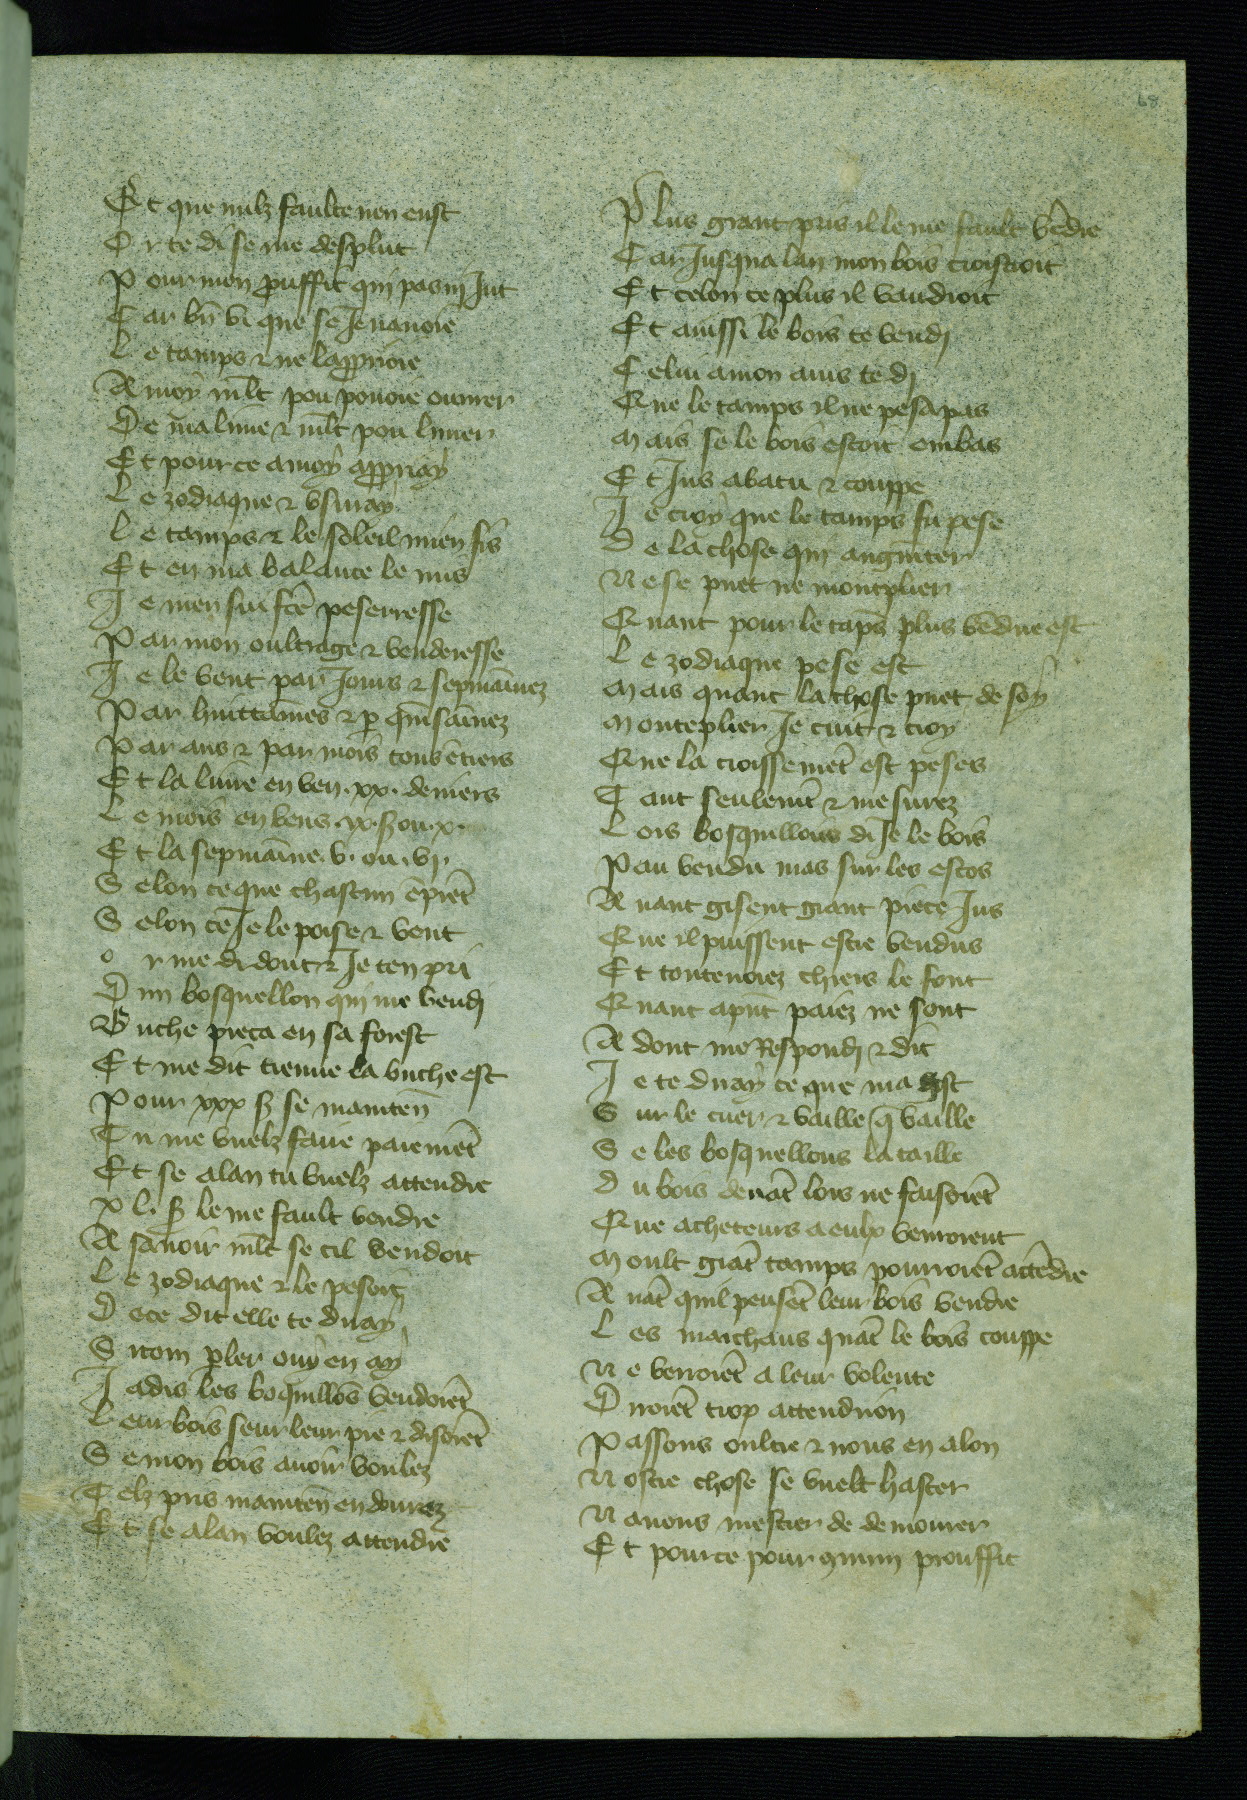 68
Et que nulz faulte nen eust
Or te di se me desplut
Pour mon ꝓuffit qui pas nj Jut
Car bn̄ vi que se Je nauoie
Le tamps ⁊ ne lapp̄noie
A moy ml̄t pou pouoie ouurer
De ma lime ⁊ ml̄t pou limer
Et pour ce a moy app̄nay
Le zodiaque ⁊ vsuray
Le tamps ⁊ le soleil mien fis
Et en ma balance le mis
Je men sui fc̄e peserresse
Par mon oultrage ⁊ venderesse
Je le vent par Jours ⁊ sepmainnez
Par huittainnes ⁊ ꝑ quīsainnez
Par ans ⁊ par mois tous ētiers
Et la liure en ven .xx. deniers
Le mois en vens .ix. ß ou .x.
Et la sepmaīne .v. ou .vj.
Selon ce que chascun ēpiēt
Selon ce Je le poise ⁊ vent
or me di dont ⁊ Je ten pri
Dun bosquellon qui me vendj
Buche pieca en sa forest
Et me dit tienne la buche est
Pour xxx ß se mainten̄
Tu me vuelz faire paiemēt
Et se a lan tu vuelz attendre
xl. ß le me fault vendre
A sauoir ml̄t se cil vendoit
Le zodiaque ⁊ le pesoit
De ce dit elle te diray
Si com ꝑler ouy en ay
Jadis les boquillōs vendoiēt
Leur bois seur leur pie ⁊ disoiēt
Se mon bois auoir voulez
Telz pris mainten̄ en donrez
Et se a lan voulez attendre
Plus grant pris il le me fault vēdre
Car Jusqua lan mon bois croistroit
Et celon ce plus il vaudroit
Et ainssi le bois te vendj
Celui a mon auis te dj
Que le tamps il ne pesa pas
Mais se le bois estoit em bas
Et Jus abatu ⁊ couppe
Je croy que le tamps fu pese
De la chose qui augmēter
Ne se puet ne monteplier
Quant pour le tāps plus vēdue est
Le zodiaque pese est
Mais quant la chose puet de soy
Monteplier Je cuit ⁊ croy
Que la croissemēt est peses
Tant seulemēt ⁊ mesurez
Lors bosquillons di Je le bois
Pau vendu mas sur les estos
Auant gisent grant piece Jus
Que il puissent estre vendus
Et toutenoiez chiers le font
Quant apn̄t paiez ne sont
Adont me Respondj ⁊ dit
Je te diray ce que ma gist
Sur le cuer ⁊ vaille q̄ vaille
Se les bosquellons la taille
Du bois deuāt lors ne faisoiēt
Que acheteurs a eulx venroient
Moult grāt tamps pourroiēt attēdre
Auāt quil peusēt leur bois vendre
Les marchans quāt le bois couppe
Ne verroiēt a leur volente
Diroiēt trop attendrion
Passons oultre ⁊ nous en alon
Nostre chose se vuelt haster
Nauons mestier de demourer
Et pour ce pour ꝯmun prouffit